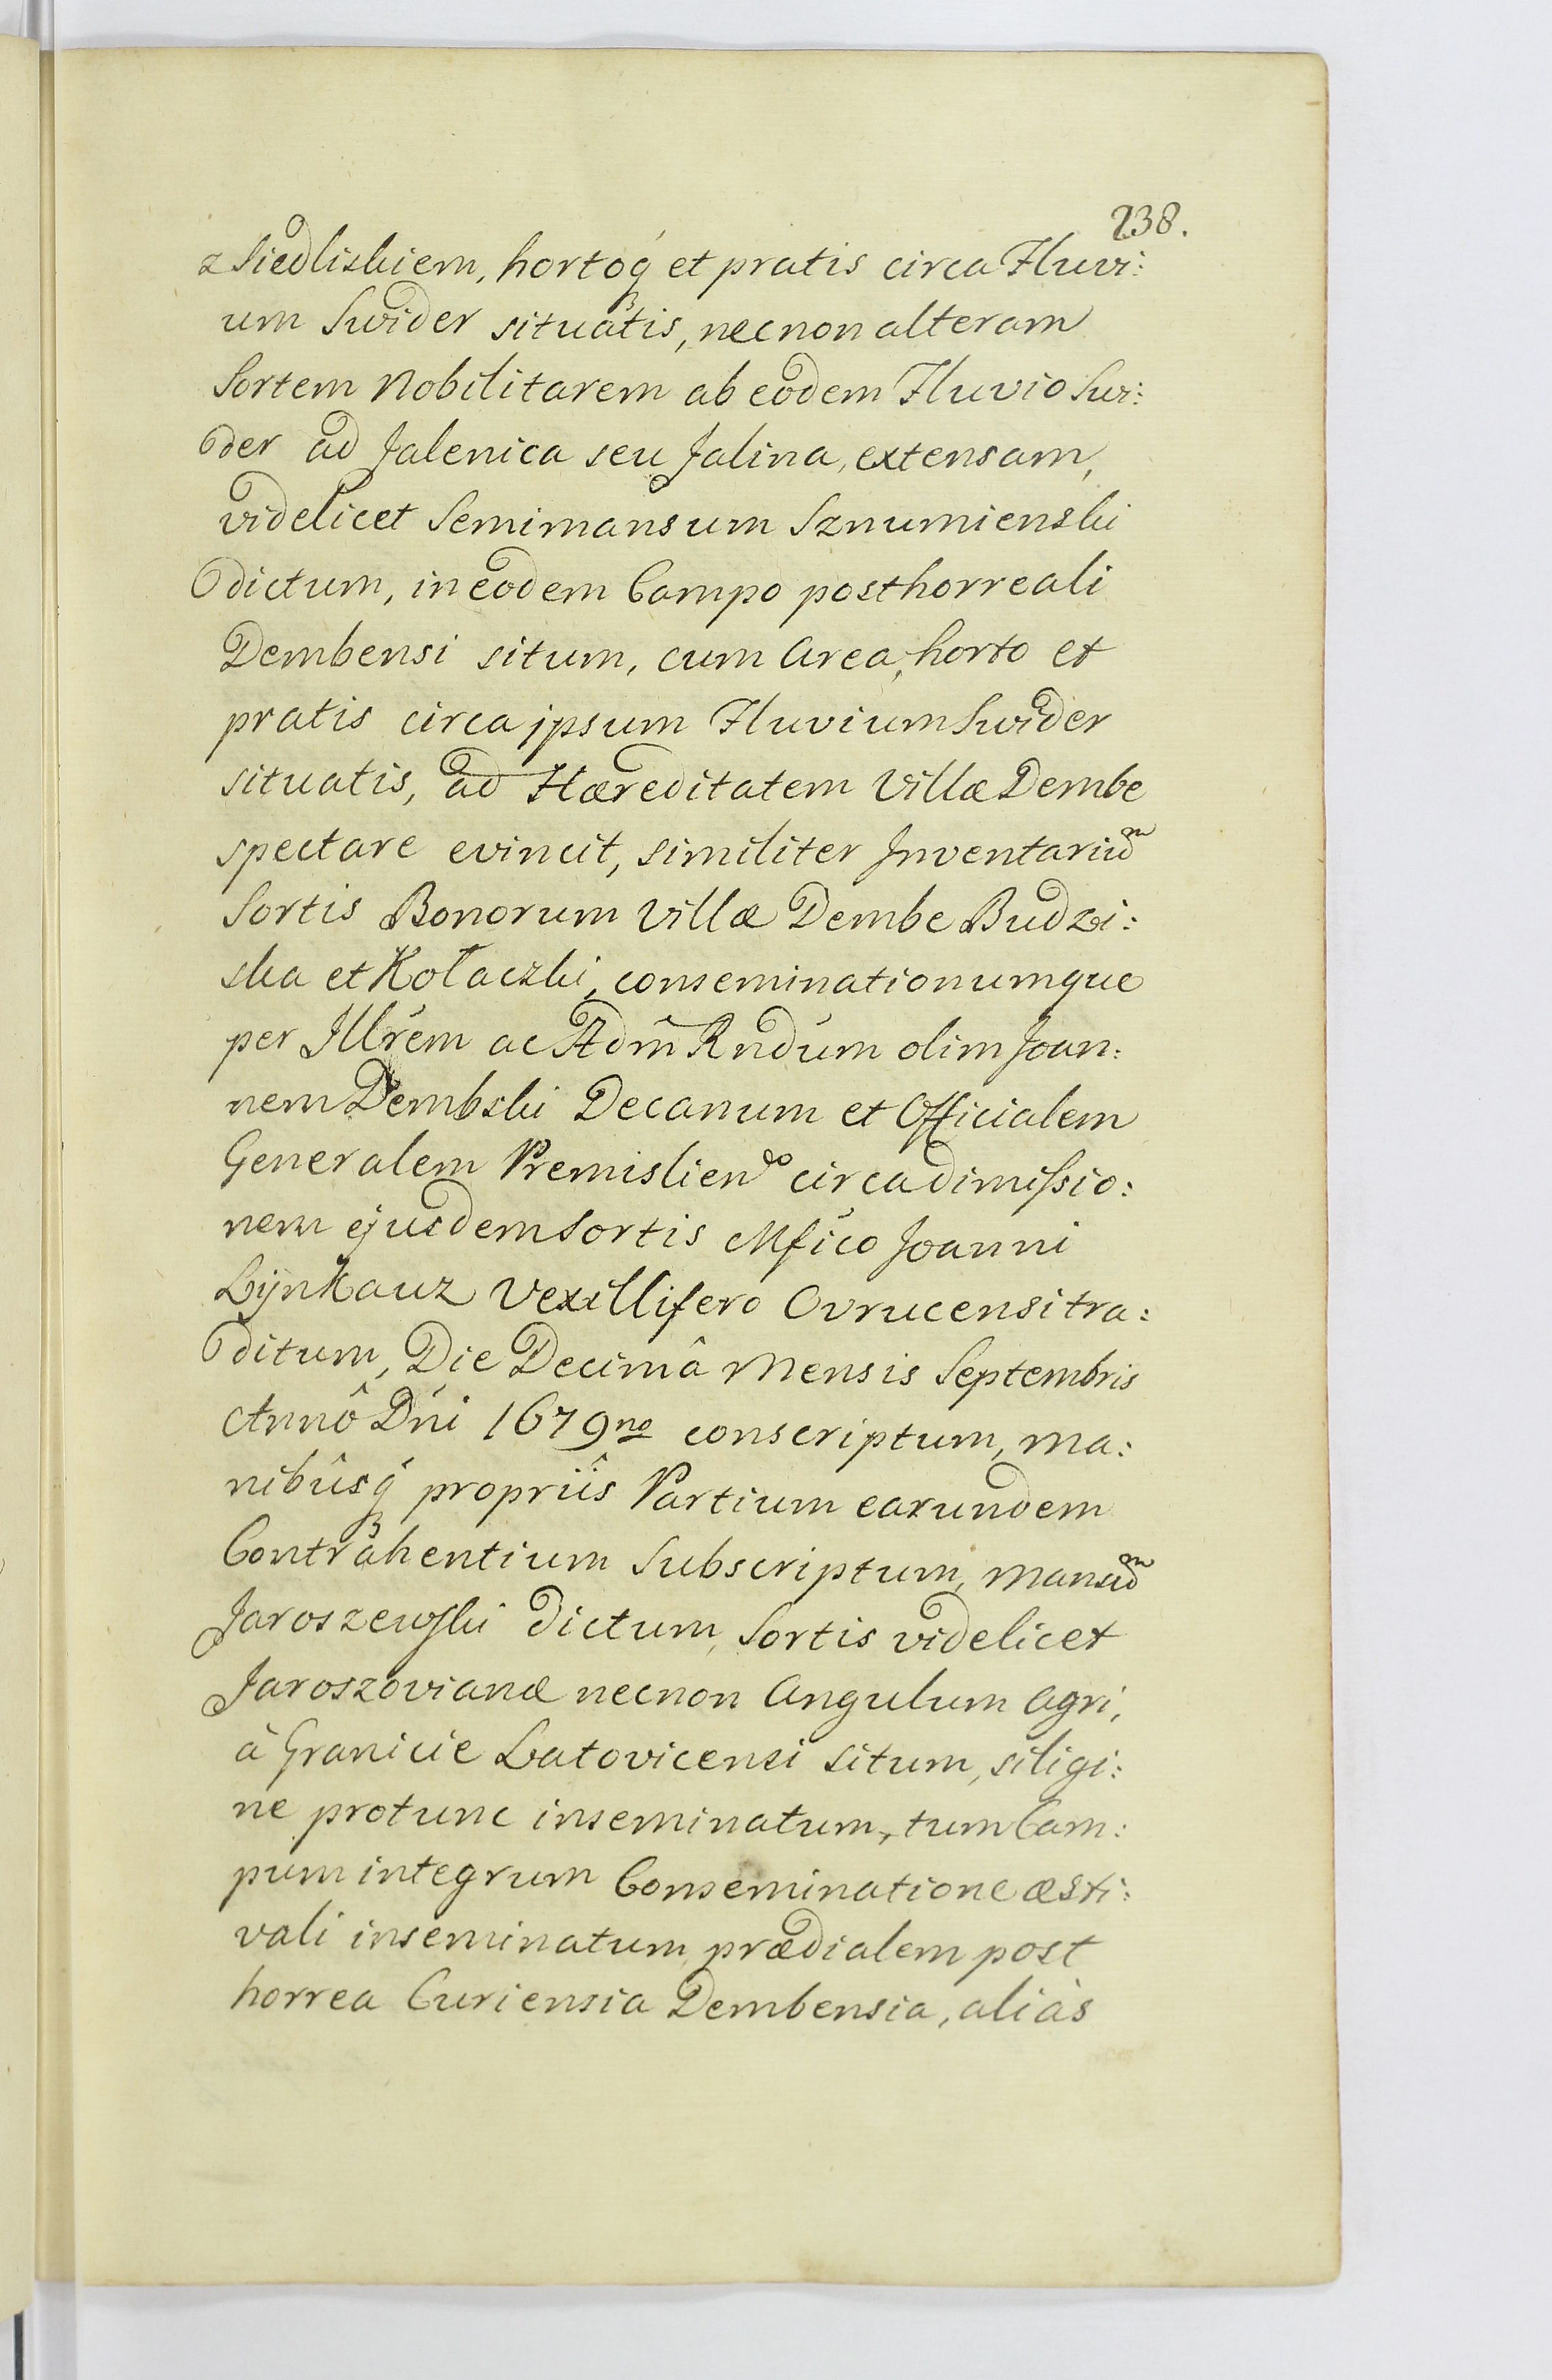 238.
z Siedliskiem, hortoq́ et pratis circa Fluvi:
um Swider situatis, necnon alteram
Sortem Nobilitarem ab eodem Fluvio Swi:
der ad Jalenica seu Jalina, extensam,
videlicet Semimansum Sznumienski
dictum, in eodem Campo posthorreali
Dembensi situm, cum Area, horto et
pratis circa jpsum Fluvium Swider
situatis, ad Hæreditatem Villæ Dembe
spectare evincit, similiter Jnventariũm
Sortis Bonorum Villæ Dembe Budzi:
ska et Kołaczki, conseminationumque
per Jllrem ac Adm̃ Rndum olim Joan:
nem Dembski Decanum et Officialem
Generalem Premislien circa dimissio:
nem ejusdem Sortis Mfico Joanni
Lÿnkauz Vexillifero Ovrucensi tra:
ditum, Die Decimâ Mensis Septembris
Annô Dni 1679no conscriptum, ma:
nibûsq́ propriîs Partium earundem
Contrahentium Subscriptum, Mansũm
Jaroszewski dictum, Sortis videlicet
Jaroszovianæ necnon Angulum Agri,
à Granicie Latovicensi situm, siligi:
ne protunc inseminatum, tum Cam:
pum integrum Conseminatione æsti:
vali inseminatum, prædialem post
horrea Curiensia Dembensia, aliàs